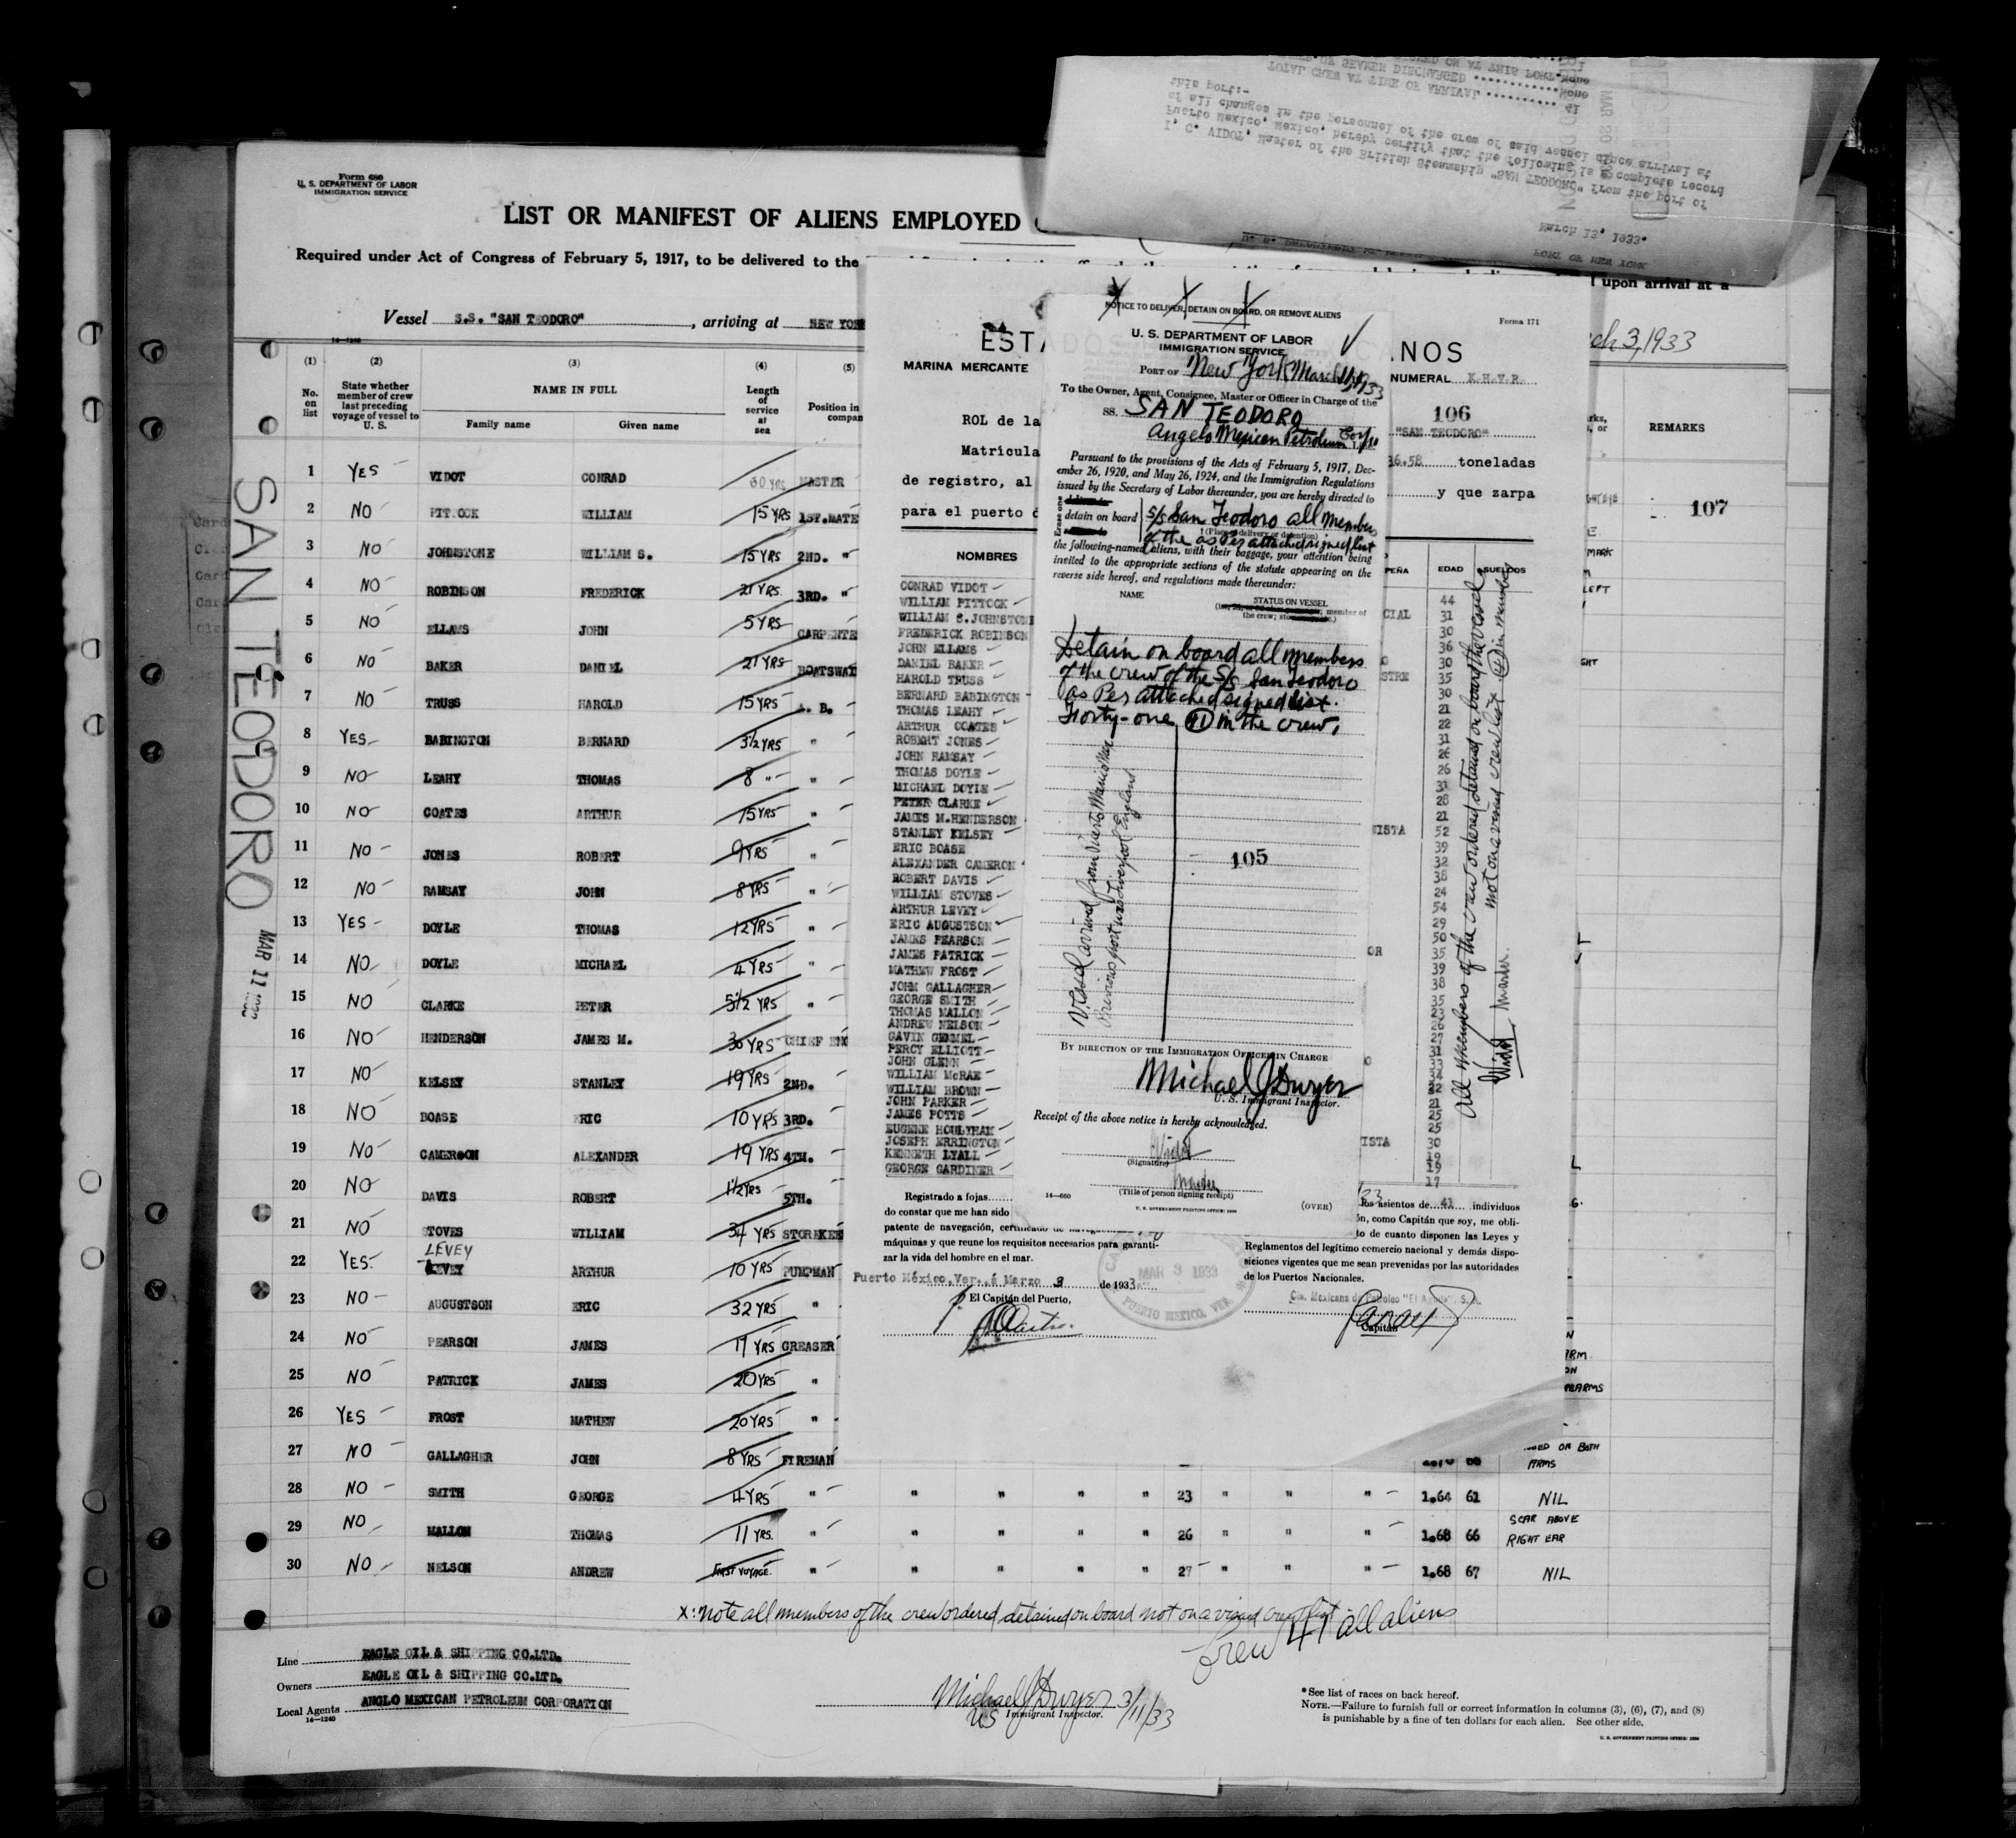 Form 680
U. S. DEPARTMENT OF LABOR
IMMIGRATION SERVICE
LIST OR MANIFEST OF ALIENS EMPLOYED
Required under Act of Congress of February 5, 1917, to be delivered to the
upon arrival at a
Vessel S.S. "SAN TEODORO", arriving at NEW YORK
ch 3, 1933
14—1240
(1) (2) (3) (4) (5)
No. on list
State whether member of crew last preceding voyage of vessel to U. S.
NAME IN FULL
Family name Given name
Length of service at sea
Position in
REMARKS
107
SAN TEODORO
MAR 11 1933
1 YES VIDOT CONRAD 30 YRS MASTER
2 NO PITTOCK WILLIAM 15 YRS 1ST. MATE
3 NO JOHNSTONE WILLIAM S. 15 YRS 2ND. "
4 NO ROBINSON FREDERICK 21 YRS. 3RD. "
5 NO ELLAMS JOHN 5 YRS CARPENTE
6 NO BAKER DANIEL 21 YRS BOATSWAI
7 NO TRUSS HAROLD 15 YRS A. B.
8 YES BABINGTON BERNARD 3 1/2 YRS "
9 NO LEAHY THOMAS 8 " "
10 NO COATES ARTHUR 15 YRS "
11 NO JONES ROBERT 9 YRS "
12 NO RAMSAY JOHN 8 YRS "
13 YES DOYLE THOMAS 12 YRS "
14 NO DOYLE MICHAEL 4 YRS "
15 NO CLARKE PETER 5 1/2 YRS "
16 NO HENDERSON JAMES M. 30 YRS CHIEF ENG
17 NO KELSEY STANLEY 19 YRS 2ND.
18 NO BOASE ERIC 10 YRS 3RD.
19 NO CAMERON ALEXANDER 19 YRS 4TH.
20 NO DAVIS ROBERT 1 1/2 YRS 5TH.
21 NO STOVES WILLIAM 34 YRS STOREKEE
22 YES LEVEY LEVEY ARTHUR 10 YRS PUMPMAN
23 NO AUGUSTSON ERIC 32 YRS "
24 NO PEARSON JAMES 17 YRS GREASER
25 NO PATRICK JAMES 20 YRS "
26 YES FROST MATHEW 20 YRS "
27 NO GALLAGHER JOHN 8 YRS FIREMAN
28 NO SMITH GEORGE 4 YRS " " " " " 23 " " " 1.64 61 NIL
29 NO MALLON THOMAS 11 YRS. " " " " " 26 " " " 1.68 66 SCAR ABOVE RIGHT EAR
30 NO NELSON ANDREW FIRST VOYAGE. " " " " " 27 " " " 1.68 67 NIL
ON BOTH
ARMS
x: note all members of the crew ordered detained on board not on a visaed crew list
Crew 41 all aliens
Line EAGLE OIL & SHIPPING CO.LTD.
Owners EAGLE OIL & SHIPPING CO.LTD.
Local Agents ANGLO MEXICAN PETROLEUM CORPORATION
14—1240
Michael J Dwyer 3/11/33
US Immigrant Inspector.
*See list of races on back hereof.
NOTE.—Failure to furnish full or correct information in columns (3), (6), (7), and (8)
is punishable by a fine of ten dollars for each alien. See other side.
U. S. GOVERNMENT PRINTING OFFICE: 1930
PORT OF NEW YORK
March 13, 1933.
I, C. VIDOT, Master of the British Steamship "SAN TEODORO" from the port of
Puerto Mexico, Mexico, hereby certify that the following is a complete record
of all changes in the personnel of the crew of said vessel since arrival at
this port:-
TOTAL CREW AT TIME OF ARRIVAL .......... 41
OF SEAMEN DISCHARGED .......... None
ON AT THIS PORT None
ESTADOS
CANOS
MARINA MERCANTE
NUMERAL K.H.V.R.
106
ROL de la
"SAN TEODORO"
Matricula
36.58 toneladas
de registro, al
y que zarpa
para el puerto d
NOMBRES
EDAD SUELDOS
CONRAD VIDOT 44
WILLIAM PITTOCK 31
WILLIAM S. JOHNSTONE 30
FREDERICK ROBINSON 36
JOHN ELLAMS 30
DANIEL BAKER 35
HAROLD TRUSS 30
BERNARD BABINGTON 21
THOMAS LEAHY 22
ARTHUR COATES 31
ROBERT JONES 26
JOHN RAMSAY 26
THOMAS DOYLE 31
MICHAEL DOYLE 28
PETER CLARKE 21
JAMES M. HENDERSON 52
STANLEY KELSEY 39
ERIC BOASE 32
ALEXANDER CAMERON 38
ROBERT DAVIS 24
WILLIAM STOVES 54
ARTHUR LEVEY 29
ERIC AUGUSTSON 50
JAMES PEARSON 35
JAMES PATRICK 39
MATHEW FROST 38
JOHN GALLAGHER 35
GEORGE SMITH 23
THOMAS MALLON 26
ANDREW NELSON 27
GAVIN GEMMEL 31
PERCY ELLIOTT 33
JOHN GLENN 34
WILLIAM McRAE 22
WILLIAM BROWN 21
JOHN PARKER 25
JAMES POTTS 25
EUGENE HOULIHAN 30
JOSEPH ERRINGTON 19
KENNETH LYALL 19
GEORGE GARDINER 17
All members of the crew ordered detained on board the vessel
not on a visaed crew list (41) in number
Vidot Master.
Registrado a fojas
los asientos de 41 individuos
do constar que me han sido
ón, como Capitán que soy, me obli-
to de cuanto disponen las Leyes y
máquinas y que reune los requisitos necesarios para garanti-
Reglamentos del legítimo comercio nacional y demás dispo-
zar la vida del hombre en el mar.
siciones vigentes que me sean prevenidas por las autoridades
de los Puertos Nacionales.
Puerto México, Ver., á Marzo 3 de 1933
El Capitán del Puerto,
MAR 3 1933
PUERTO MEXICO, VER.
Cia. Mexicana de Petroleo "El Aguila", S. A.
Capitán
NOTICE TO DELIVER, DETAIN ON BOARD, OR REMOVE ALIENS
Forma 171
U. S. DEPARTMENT OF LABOR
IMMIGRATION SERVICE
PORT OF New York March 11, 1933
To the Owner, Agent, Consignee, Master or Officer in Charge of the
SS. SAN TEODORO
Angelo Mexican Petroleum Corp
Pursuant to the provisions of the Acts of February 5, 1917, Dec-
ember 26, 1920, and May 26, 1924, and the Immigration Regulations
issued by the Secretary of Labor thereunder, you are hereby directed to
detain on board S/S San Teodoro all members
of the as Per attached signed list
(Place of delivery or detention)
the following-named aliens, with their baggage, your attention being
invited to the appropriate sections of the statute appearing on the
reverse side hereof, and regulations made thereunder:
NAME
STATUS ON VESSEL
Detain on board all members
of the crew of the S/S San Teodoro
as Per attached signed list.
Forty-one (41) in the crew.
Vessel arrived from Puerto Mexico Mex
Previous port was Liverpool England
105
BY DIRECTION OF THE IMMIGRATION OFFICER IN CHARGE
Michael J Dwyer
U. S. Immigrant Inspector.
Receipt of the above notice is hereby acknowledged.
Vidot
(Signature)
Master
(Title of person signing receipt)
14—660
U. S. GOVERNMENT PRINTING OFFICE: 1930
(OVER)